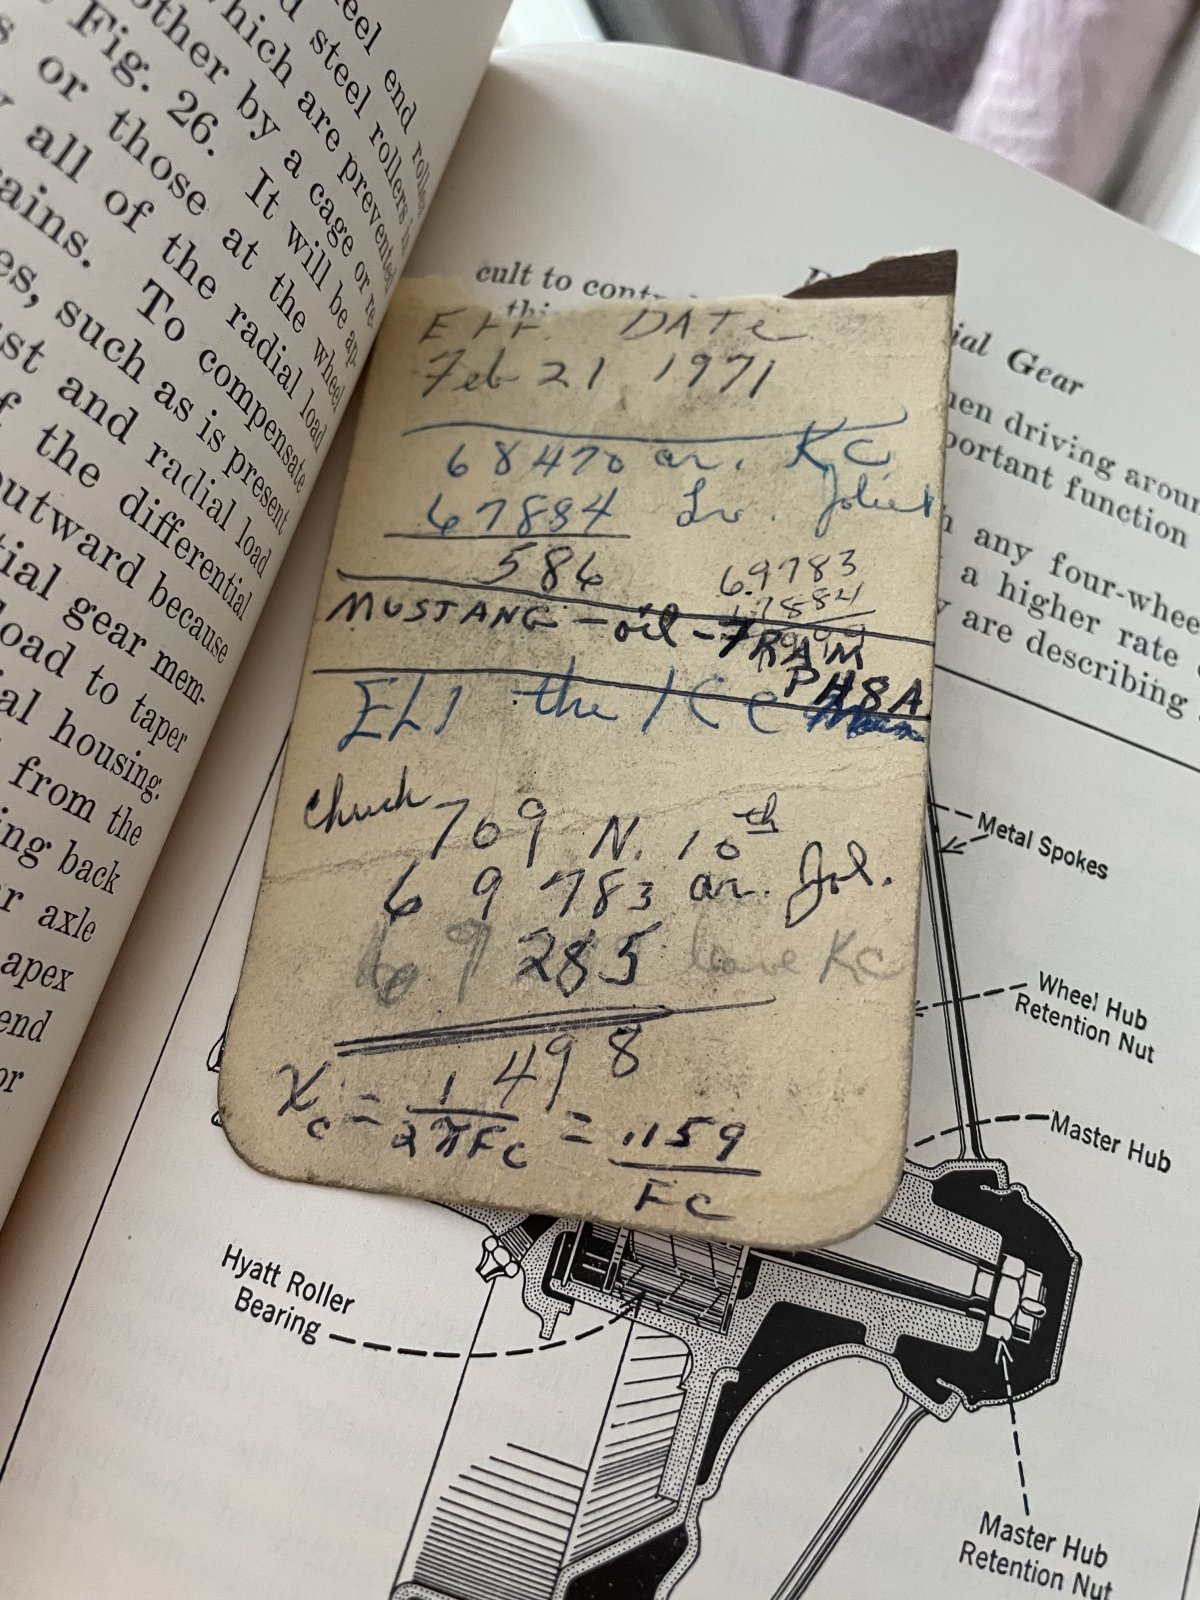 heel end
d steel rollers
which are prevented
other by a cage or
Fig. 26. It will be ap-
s or those at the wheel
all of the radial load
ains. To compensate
es, such as is present
st and radial load
f the differential
outward because
tial gear mem-
load to taper
al housing.
from the
ing back
r axle
apex
end
or
cult to
ial Gear
hen driving
portant function
any four-whee
a higher rate
y are describing
EFF. DATE
Feb 21 1971
68470 ar. KC
67884 Lv. Joliet
586
69783
MUSTANG - oil - 7
RAM
PH8A
EL1 the ICC
Chuck
709 N. 10th
69783 ar. Jol.
69285 leave KC
498
Xc = 1/2πFC = .159/FC
Metal Spokes
Wheel Hub
Retention Nut
Master Hub
Hyatt Roller
Bearing
Master Hub
Retention Nut